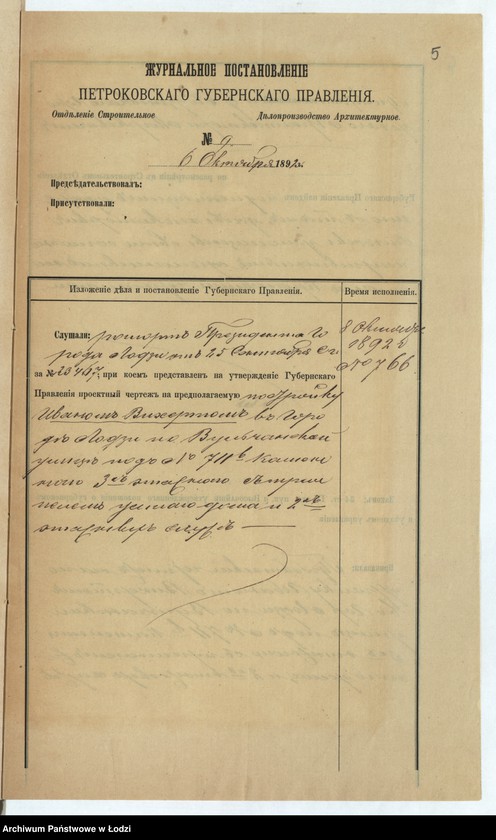 5
ЖУРНАЛЬНОЕ ПОСТАНОВЛЕНІЕ
ПЕТРОКОВСКАГО ГУБЕРНСКАГО ПРАВЛЕНІЯ.
Отдѣленіе Строительное
Дѣлопроизводство Архитектурное.
№ 9
6 Октября 1892 г.
Предсѣдательствовалъ:
Присутствовали:
Изложеніе дѣла и постановленіе Губернскаго Правленія.
Время исполненія.
Слушали: рапортъ Президента Го
рода Лодзи отъ 25 Сентября с. г.
за № 23417; при коемъ представленъ на утвержденіе Губернскаго
Правленія проектный чертежъ на предполагаемую постройку
Иваномъ въ Горо
дѣ Лодзи по Вульчанской
улицѣ подъ № 711 б камен
наго 3хъ этажнаго съ
жилаго дома и 2хъ
этажныхъ
8 Октября
1892 г.
№ 766
Archiwum Państwowe w Łodzi